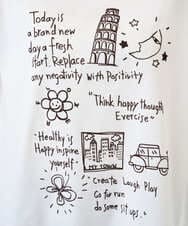 Today is
a brand new
day a fresh
start. Replace
any negativity with Positivity
"Think, happy thought
Exercise"
"Healthy is
Happy inspire
yourself"
MY TOWN
Create Laugh Play
Go for run
do some sit ups."